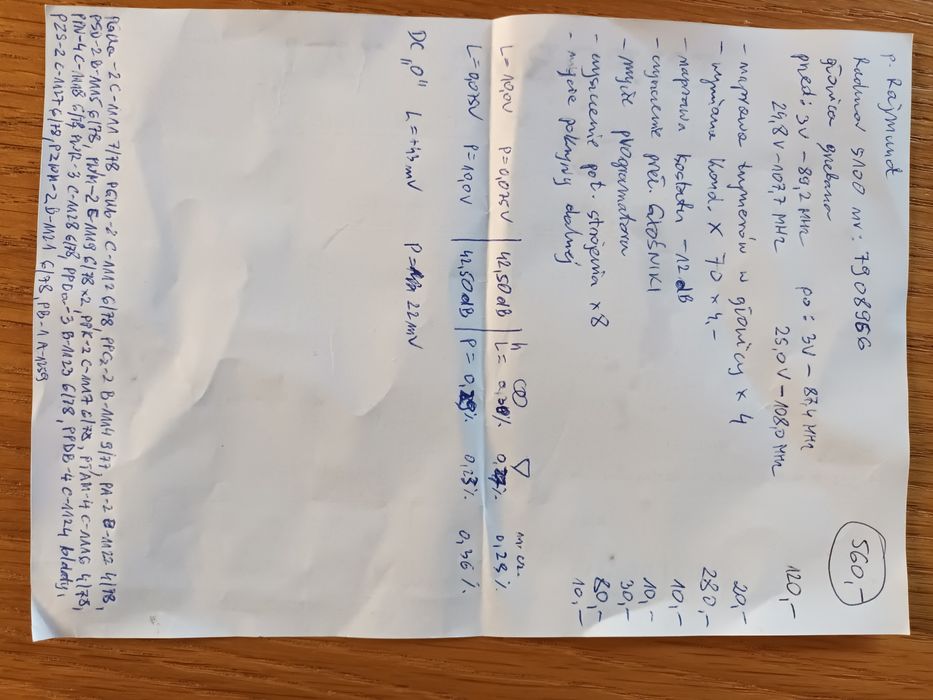 p. Rajmund
Radmor 5100 nr: 7908966
560,-
głowica grebana
przed: 3V - 89,2 MHz po: 3V - 87,4 MHz
24,8V - 107,7 MHz 25,0V - 108,0 MHz 120,-
- naprawa trymerów w głowicy x 4 20,-
- wymiana kond. x 70 x 4,- 280,-
- naprawa kontaktu -12dB 10,-
- czyszczenie przeł. GŁOŚNIKI 10,-
- mycie programatora 30,-
- czyszczenie pot. strojenia x 8 80,-
- mycie pokrywy dolnej 10,-
L = 10,0V P = 0,075V | 42,50dB | L = 0,28% 0,27% 0,28%
L = 0,075V P = 10,0V | 42,50dB | P = 0,29% 0,23% 0,36%
DC „0" L = +43mV P = 22mV
2 C-1111 7/78 2 C-1112 6/78 PPCz-2 B-1114 9/77, PA-2 B-1122 4/78,
PSD-2 B-1115 6/78, 6/78 x2, PPK-2 C-1117 6/78, 4 C-1116 4/78,
4 C-1118 6/78 3 C-1128 6/78 3 B-1123 6/78, PPDB-4 C-1124 b/daty,
PZS-2 C-1127 6/78, PZWM-2 B-1121 6/78, PB-1 A-1259